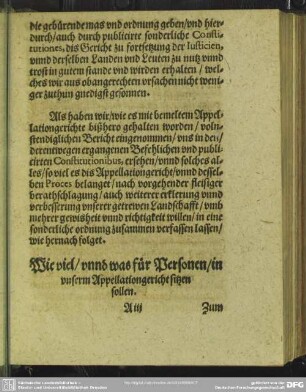 die gebürende mas vnd ordnung geben/vnd hier-
durch/auch durch publicirte sonderliche Consti-
tutiones, dis Gericht zu fortsetzung der Iusticien,
vnnd derselben Landen vnd Leuten zu nutz vnnd
trost in gutem stande vnd wirden erhalten / wel-
ches wir aus obangerechten vrsachen nicht weni-
ger zuthun gnedigst gesonnen.
Als haben wir/wie es mit bemeltem Appel-
lationgerichte bißhero gehalten worden / voln-
stendiglichen Bericht eingenommen/vns in den
derentwegen ergangenen Befehlichen vnd publi-
cirten Constitutionibus, ersehen/vnnd solches al-
les/so viel es dis Appellationgericht/vnnd dessel-
ben Proces belanget/nach vorgehender fleisiger
berathschlagung/auch weiterer erklerung vnnd
verbesserung vnserer getrewen Landschafft / vmb
mehrer gewisheit vnnd richtigkeit willen/in eine
sonderliche ordnung zusammen verfassen lassen/
wie hernach folget.
Wie viel/vnnd was für Personen/in
vnserm Appellationgericht sitzen
sollen.
A iij Zum